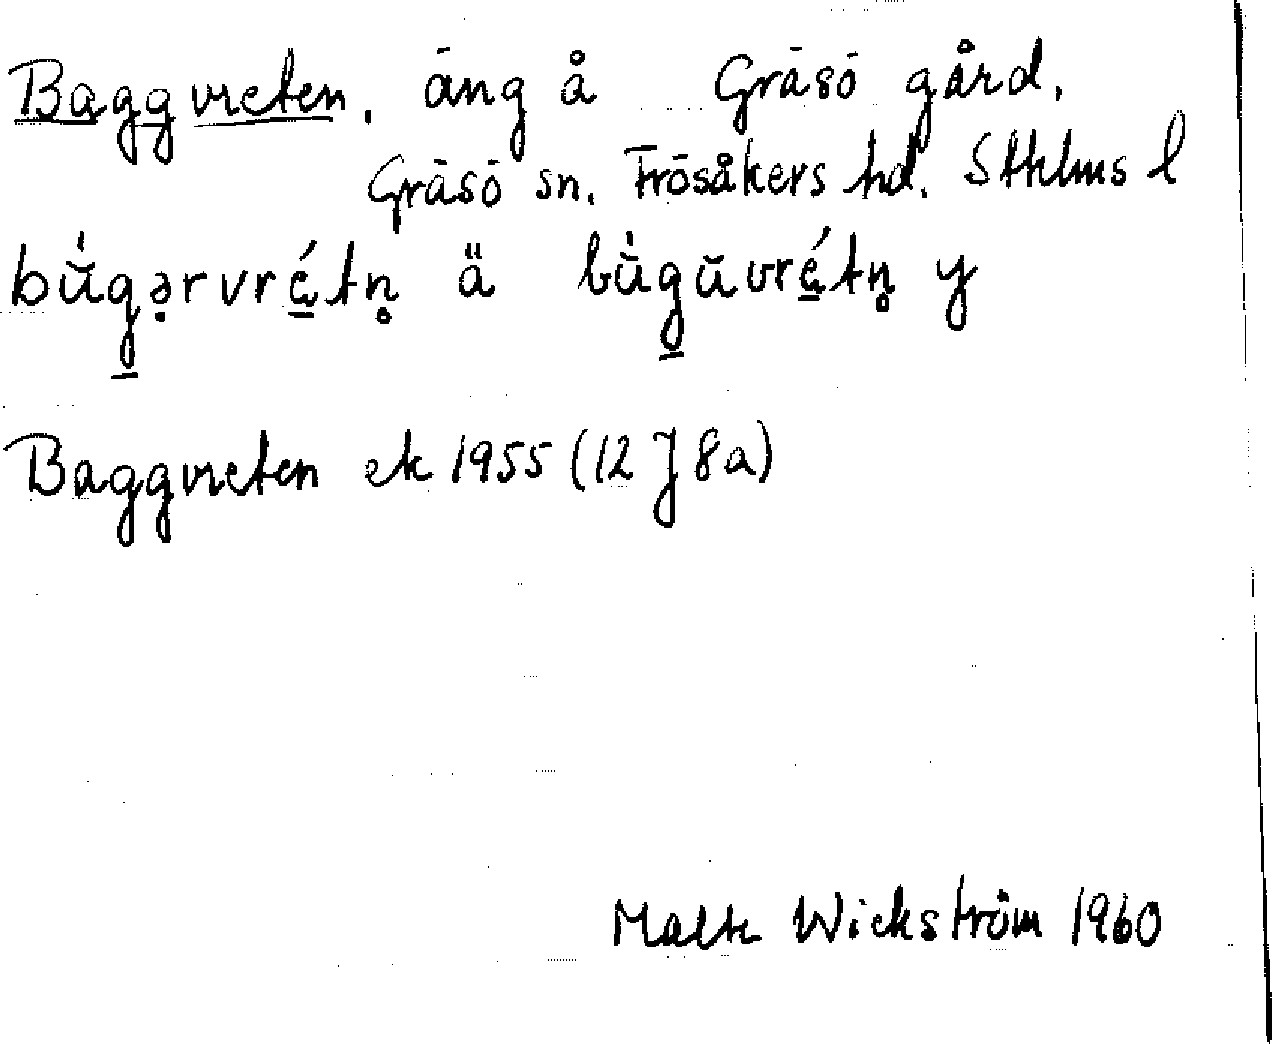 Baggvreten, äng å Gräsö gård,
Gräsö sn. Frösåkers hd. Sthlms l
bŭ̀gərvrétn̥ ä bŭ̀gŭvrétn̥ y
Baggvreten ek 1955 (12 J 8a)
Malte Wickström 1960